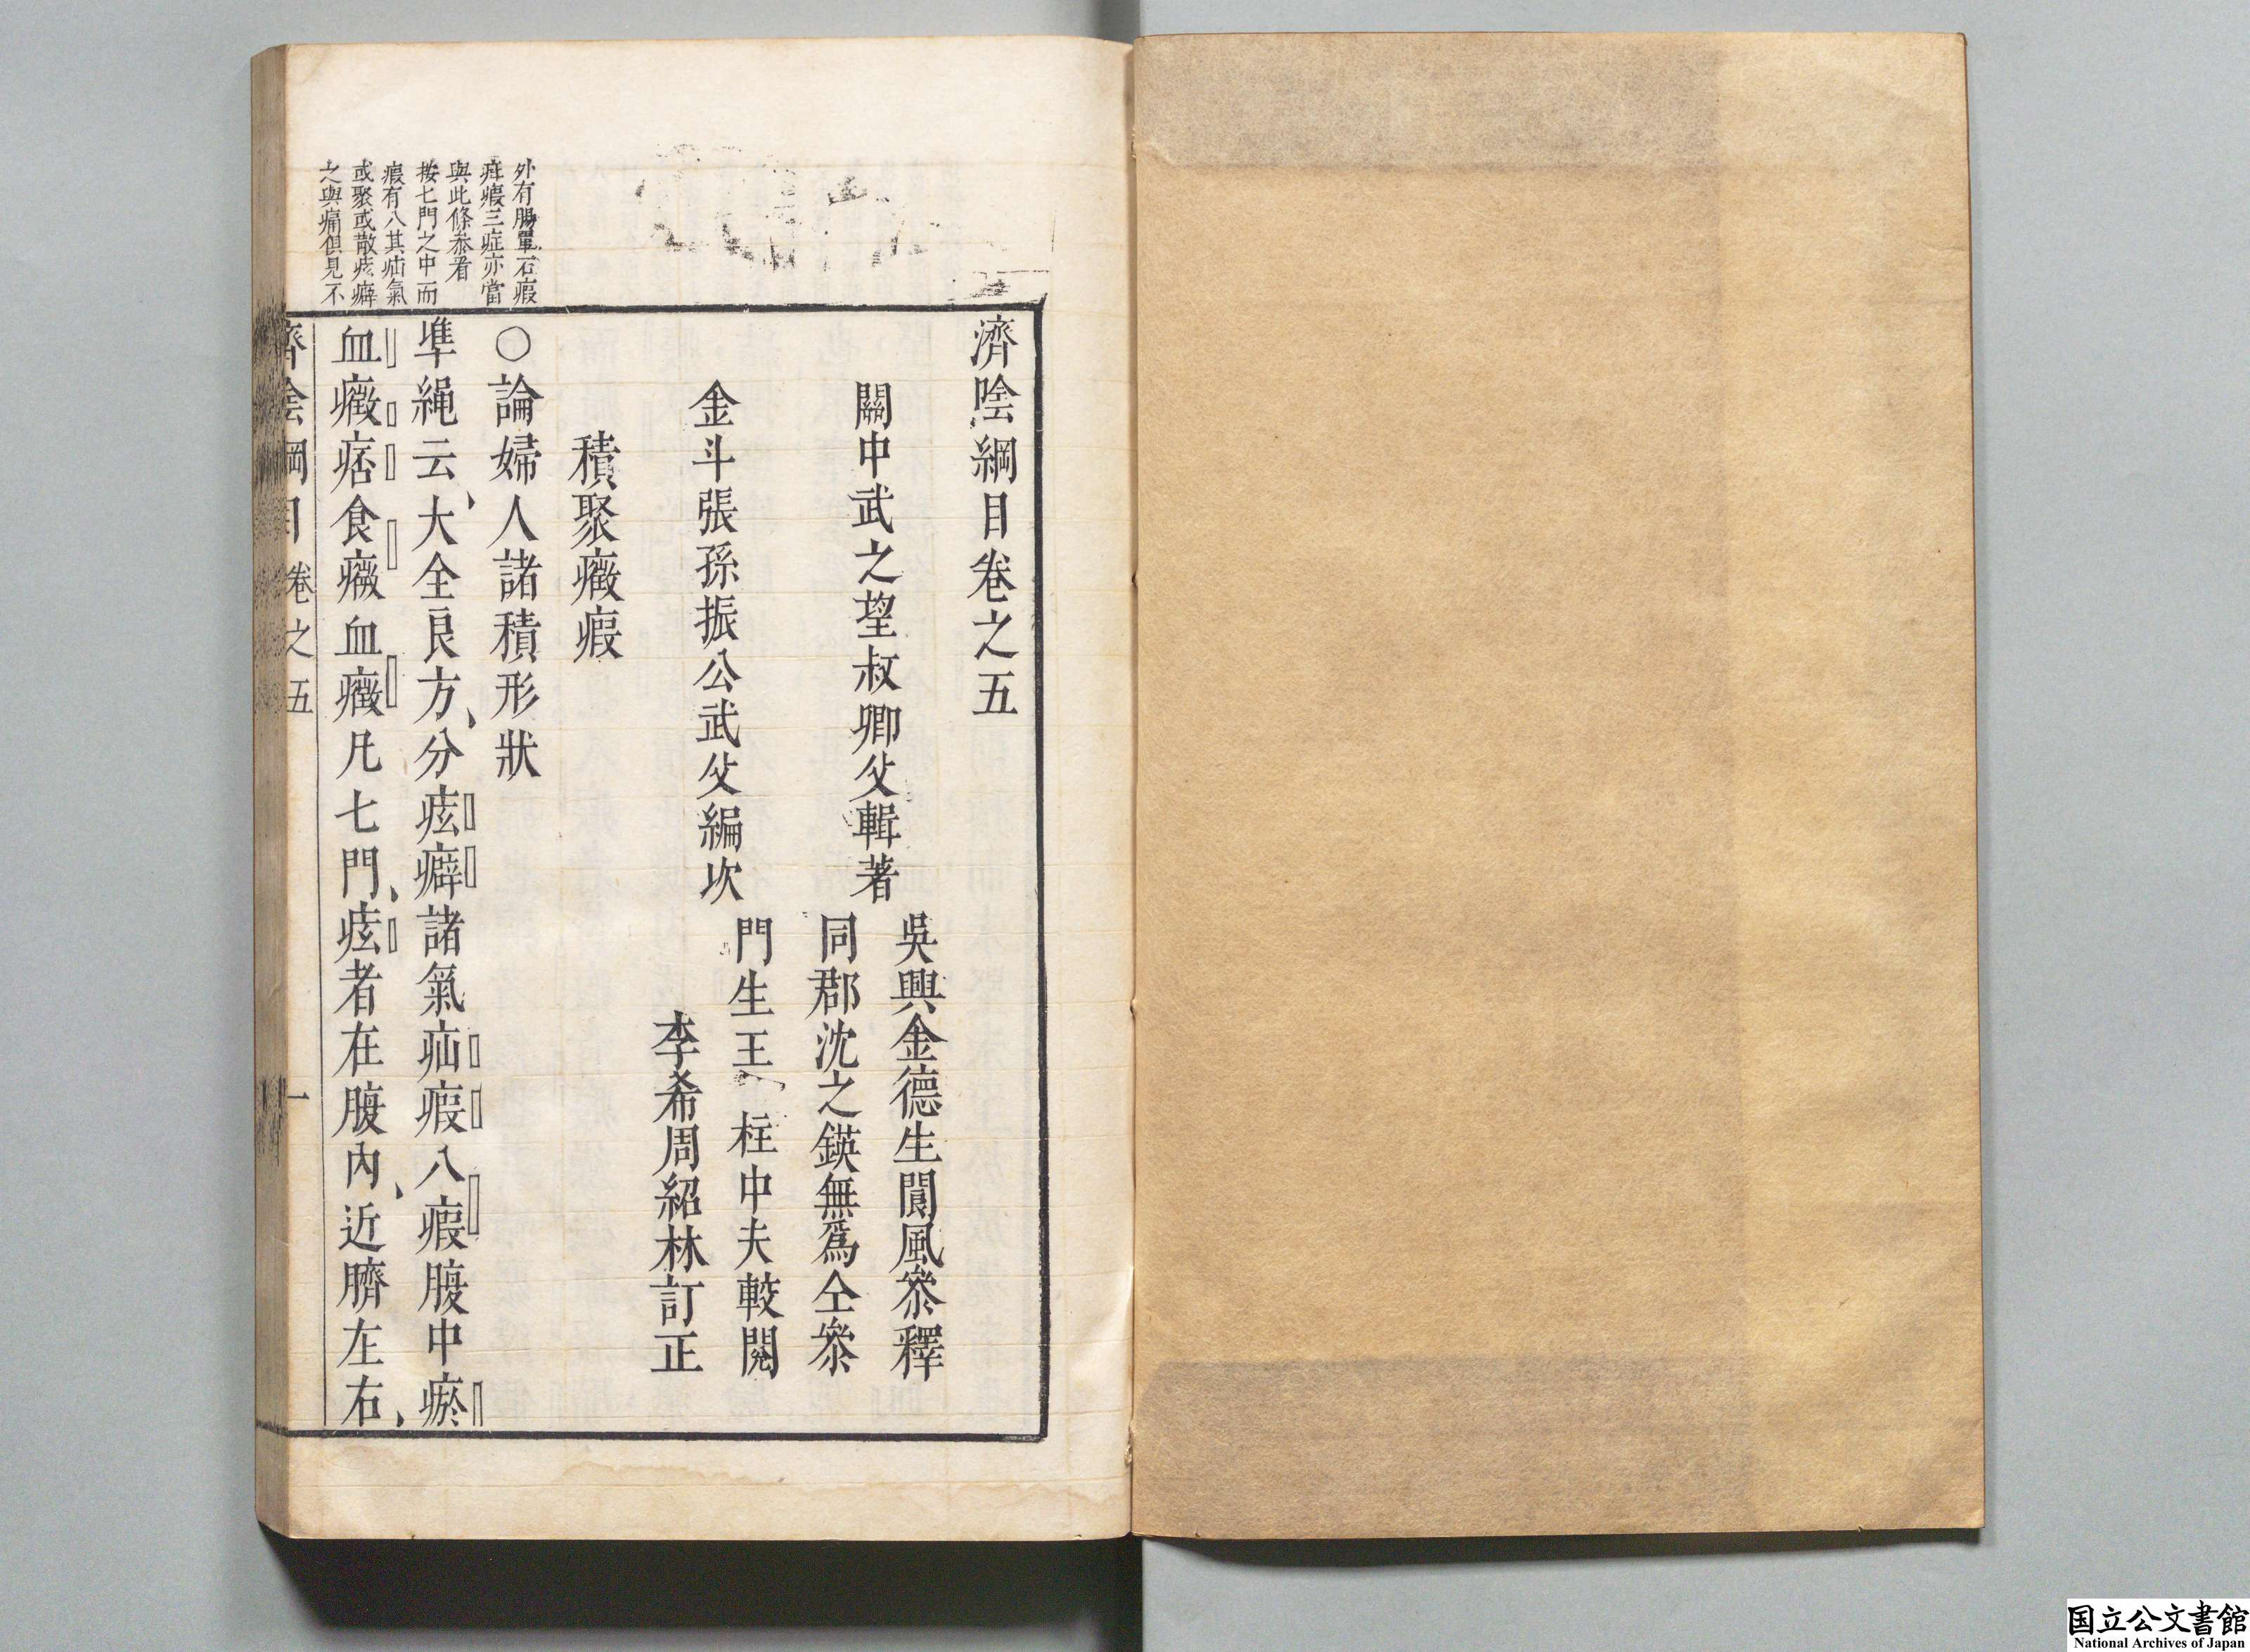 濟陰綱目卷之五
關中武之望叔卿父輯著
吳興金德生閬風叅釋
同郡沈之鍈無爲仝叅
金斗張孫振公武父編次
門生王 柱中夫較閱
李希周紹林訂正
積聚癥瘕
○論婦人諸積形狀
外有腸覃石瘕
痺瘕三症亦當
與此條叅看
按七門之中而
瘕有八其疝氣
或聚或散痃癖
之與痛俱見不
準繩云、大全良方、分痃癖諸氣疝瘕八瘕腹中瘀
血癥痞食癥血癥凡七門、痃者在腹內、近臍左右、
濟陰綱目 卷之五 一
国立公文書館
National Archives of Japan